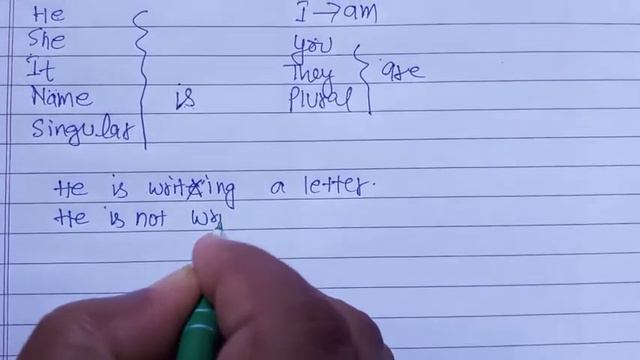 He
She
It
Name is
Singular
I → am
You
They are
Plural
He is writing a letter.
He is not wr